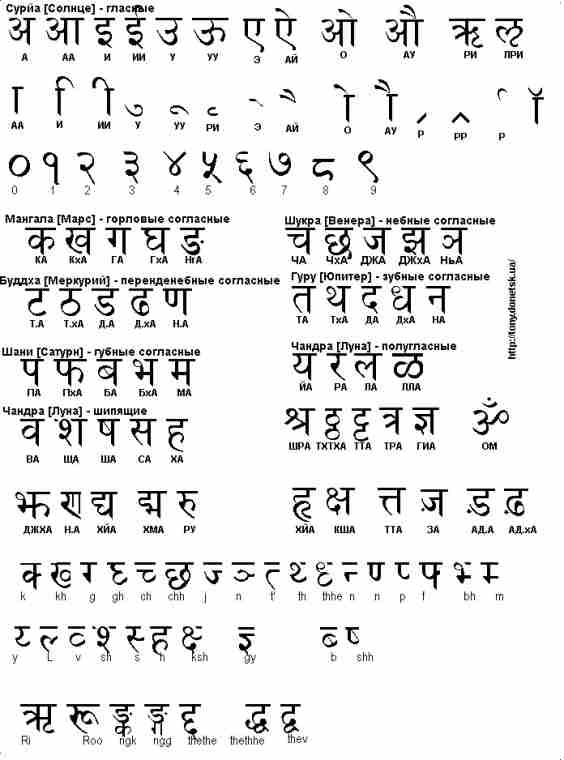 Сурйа [Солнце] - гласные
अ आ इ ई उ ऊ ए ऐ ओ औ ऋ ऌ
А АА И ИИ У УУ Э АЙ О АУ РИ ЛРИ
ा ि ी ु ू ृ े ै ो ौ
АА И ИИ У УУ РИ Э АЙ О АУ Р РР Р
० १ २ ३ ४ ५ ६ ७ ८ ९
0 1 2 3 4 5 6 7 8 9
Мангала [Марс] - горловые согласные
क ख ग घ ङ
КА КхА ГА ГхА НгА
Шукра [Венера] - небные согласные
च छ ज झ ञ
ЧА ЧхА ДЖА ДЖхА НьА
Буддха [Меркурий] - перенденебные согласные
ट ठ ड ढ ण
Т.А Т.хА Д.А Д.хА Н.А
Гуру [Юпитер] - зубные согласные
त थ द ध न
ТА ТхА ДА ДхА НА
http://tony.donetsk.ua/
Шани [Сатурн] - губные согласные
प फ ब भ म
ПА ПхА БА БхА МА
Чандра [Луна] - полугласные
य र ल ळ
ЙА РА ЛА ЛЛА
Чандра [Луна] - шипящие
व श ष स ह
ВА ЩА ША СА ХА
श्र ट्ठ ट्ट त्र ज्ञ ॐ
ШРА ТХТХА ТТА ТРА ГИА ОМ
झ ण द्य द्म रु
ДЖХА Н.А ХЙА ХМА РУ
हृ क्ष त्त ज़ ड़ ढ़
ХЙА КША ТТА ЗА АД.А АД.хА
k kh g gh ch chh j n t' th thhe n n p f bh m
y L v sh s h ksh gy b shh
ऋ रू ङ्क ङ्ग द्द द्ध द्व
Ri Roo ngk ngg thethe thethhe thev